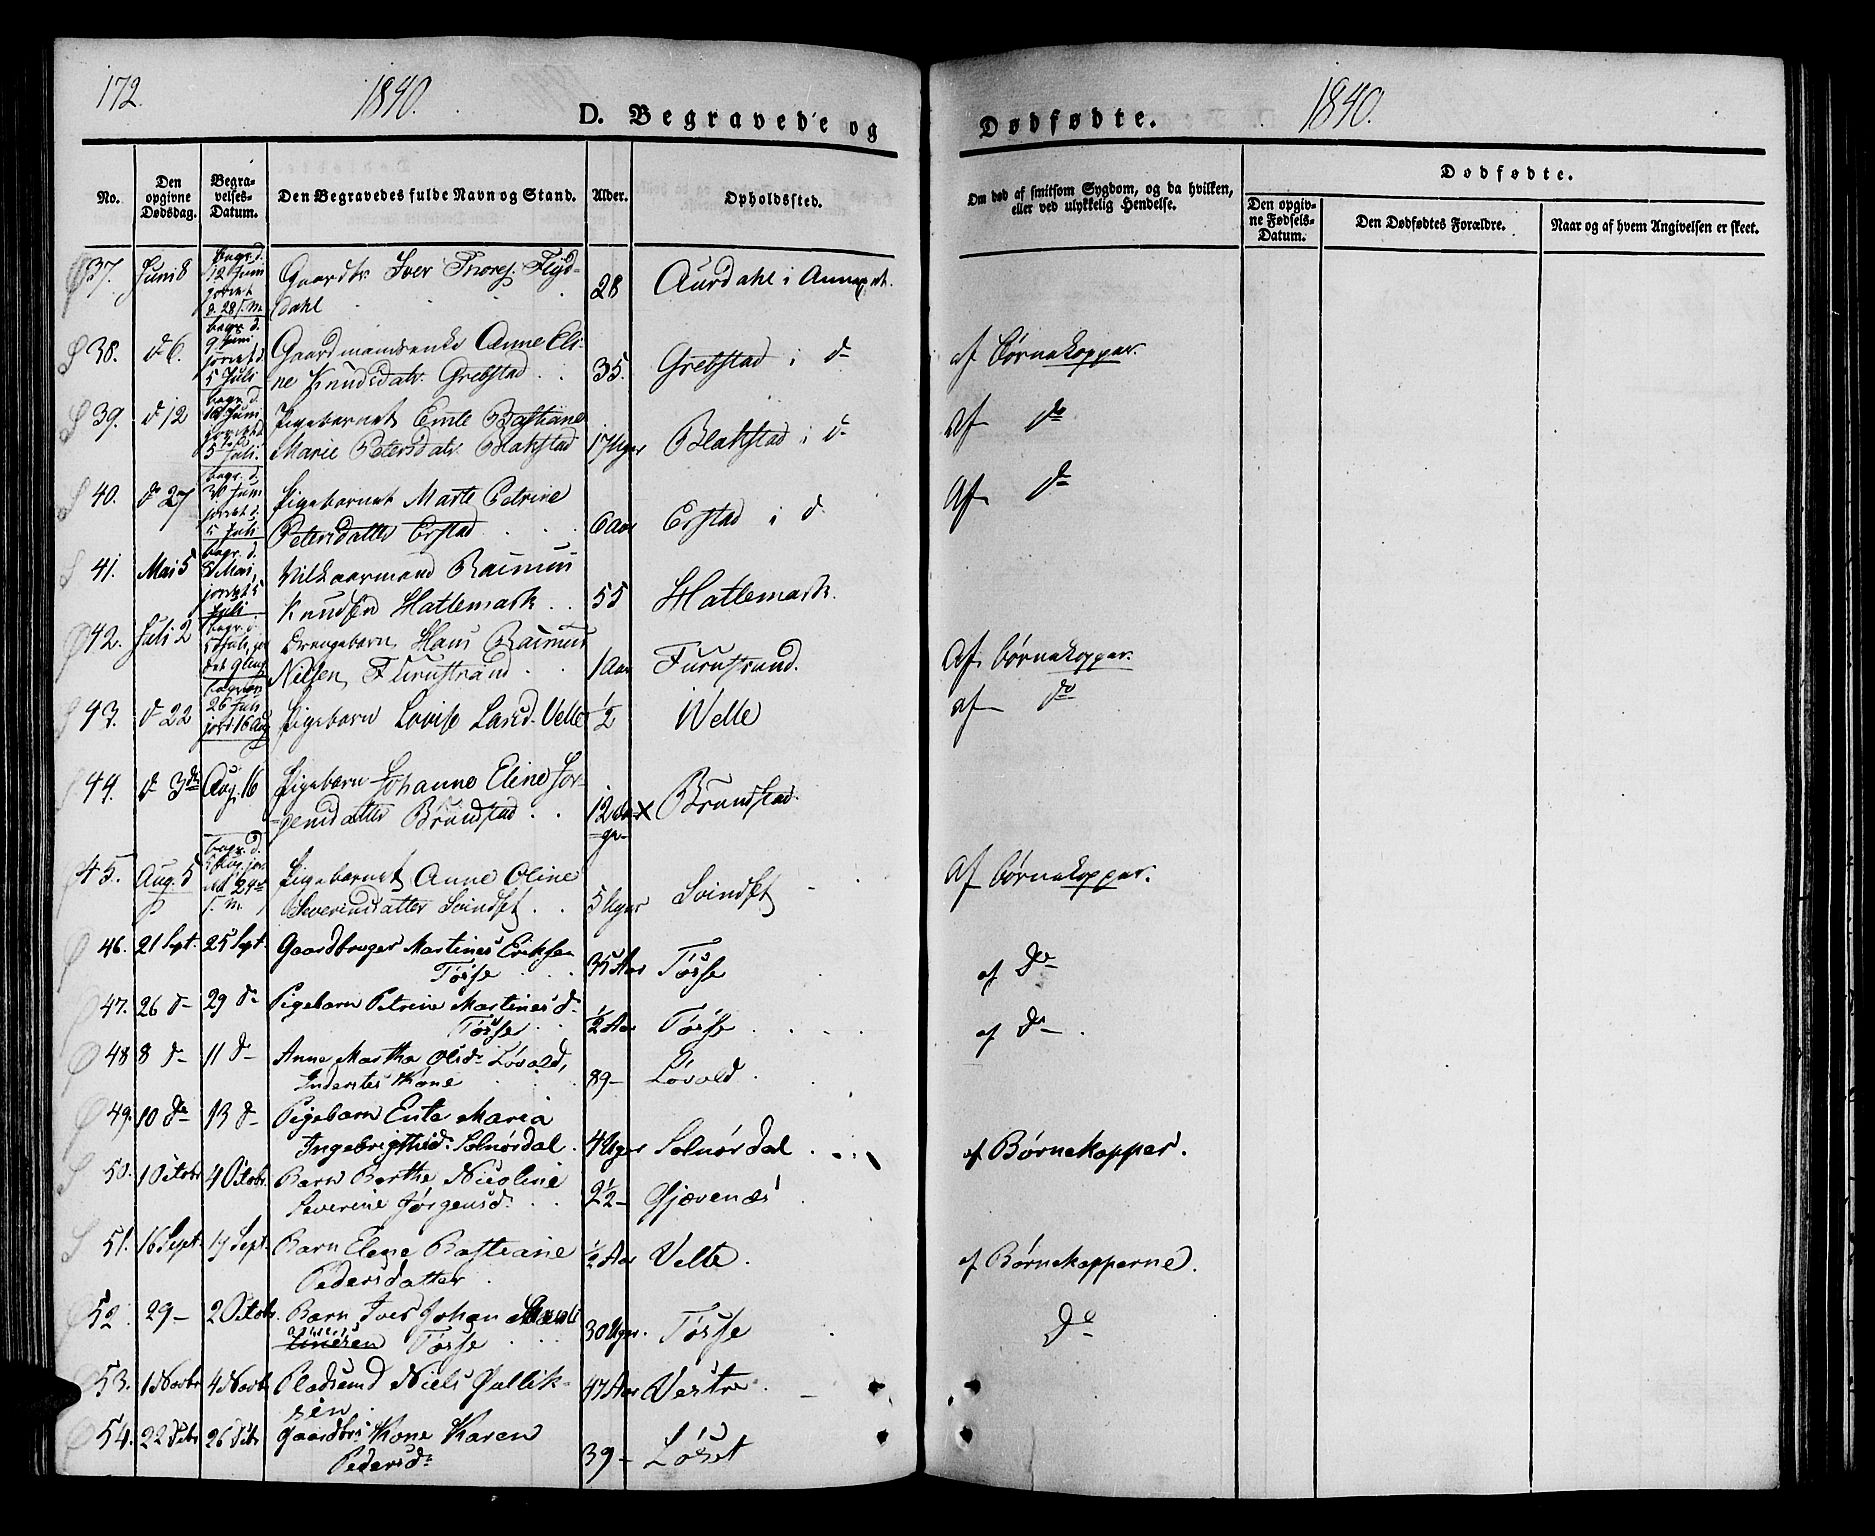 172.
1840.
D. Begravede og
Dødfødte.
1840.
No.
Den opgivne Dødsdag.
Begravelses-Datum.
Den Begravedes fulde Navn og Stand.
Alder.
Opholdssted.
Om død af smitsom Sygdom, og da hvilken, eller ved ulykkelig Hendelse.
Dødfødte.
Den opgivne Fødsels-Datum.
Den Dødfødtes Forældre.
Naar og af hvem Angivelsen er skeet.
37. Juni 8 begr. d. 12 Juni Gaardbr. Iver Thores. Flyddahl 28 Aurdahl i Annexet.
38. d 6. begr. d. 9 Juni jordet d. 5 Juli Gaardmandsenke Anne Eline Knudsdatr. Grebstad 35. Grebstad i d- af Børnekopper.
39. d 12 begr. d. Juni jordet d. 5 Juli. Pigebarnet Emte Bastiane Marie Petersdatr. Blakstad 17 Uger Blakstad i d- af do
40. do 27 begr. d. 30 Juni jordet d. 5 Juli Pigebarnet Marte Petrine Petersdatter Erstad 6 Aar Erstad i d. Af do
41. Mai 5 begr. d. 8 Mai, jordet 5 Juli Vilkaarmand Rasmus Knudsen Hatlemark 55 Hatlemark.
42. Juli 2 begr. d. 5 Juli, Drengebarn Hans Rasmus Nilsen Furustrand 1 Aar Furustrand. Af børnekopper.
43. d 22 26 Juli jord 16 Aug Pigebarn Lovise Larsd. Velle ½ Velle af do
44. d 3de Aug. 16 Pigebarn Johanne Eline Jørgensdatter Brundstad 12 Dage Brundstad.
45. Aug. 5 begr. d. Pigebarnet Anne Oline Severinsdatter Svindset 5 Uger Svindset Af børnekopper.
46. 21 Sept. 25 Sept. Gaardbruger Martines Eriksen Tøsse 35 Aar Tøsse af Do
47. 26 d- 29 d- Pigebarn Petrine Martinesd- Tøsse ½ Aar Tøsse af Do.
48 8 d- 11 d- Anne Martha Olsdr Løvold, Inderstes Kone 89- Løvold
49. 10 do 13 d- Pigebarn Enta Maria Ingebrigthsd. Solnørdal 4 Uger Solnørdal af Børnekopper.
50. 1 Octobr 4 Octobr. Barn Berthe Nicoline Severine Jørgensd. 2½- Gjævenæs
51. 16 Sept. 19 Sept. Barn Elene Bastiane Pedersdatter ½ Aar Velle. af Børnekopperne.
52. 29- 2 Octobr. Barn Iver Johan Tøsse 30 Uger. Tøsse Do
53. 1 Novbr 4 Novbr Pladsmd Niels Gulliksen 47 Aar Vestre
54. 22 Debr 26 Debr Gaardbrs Kone Karen Pedersdr 39- Løset